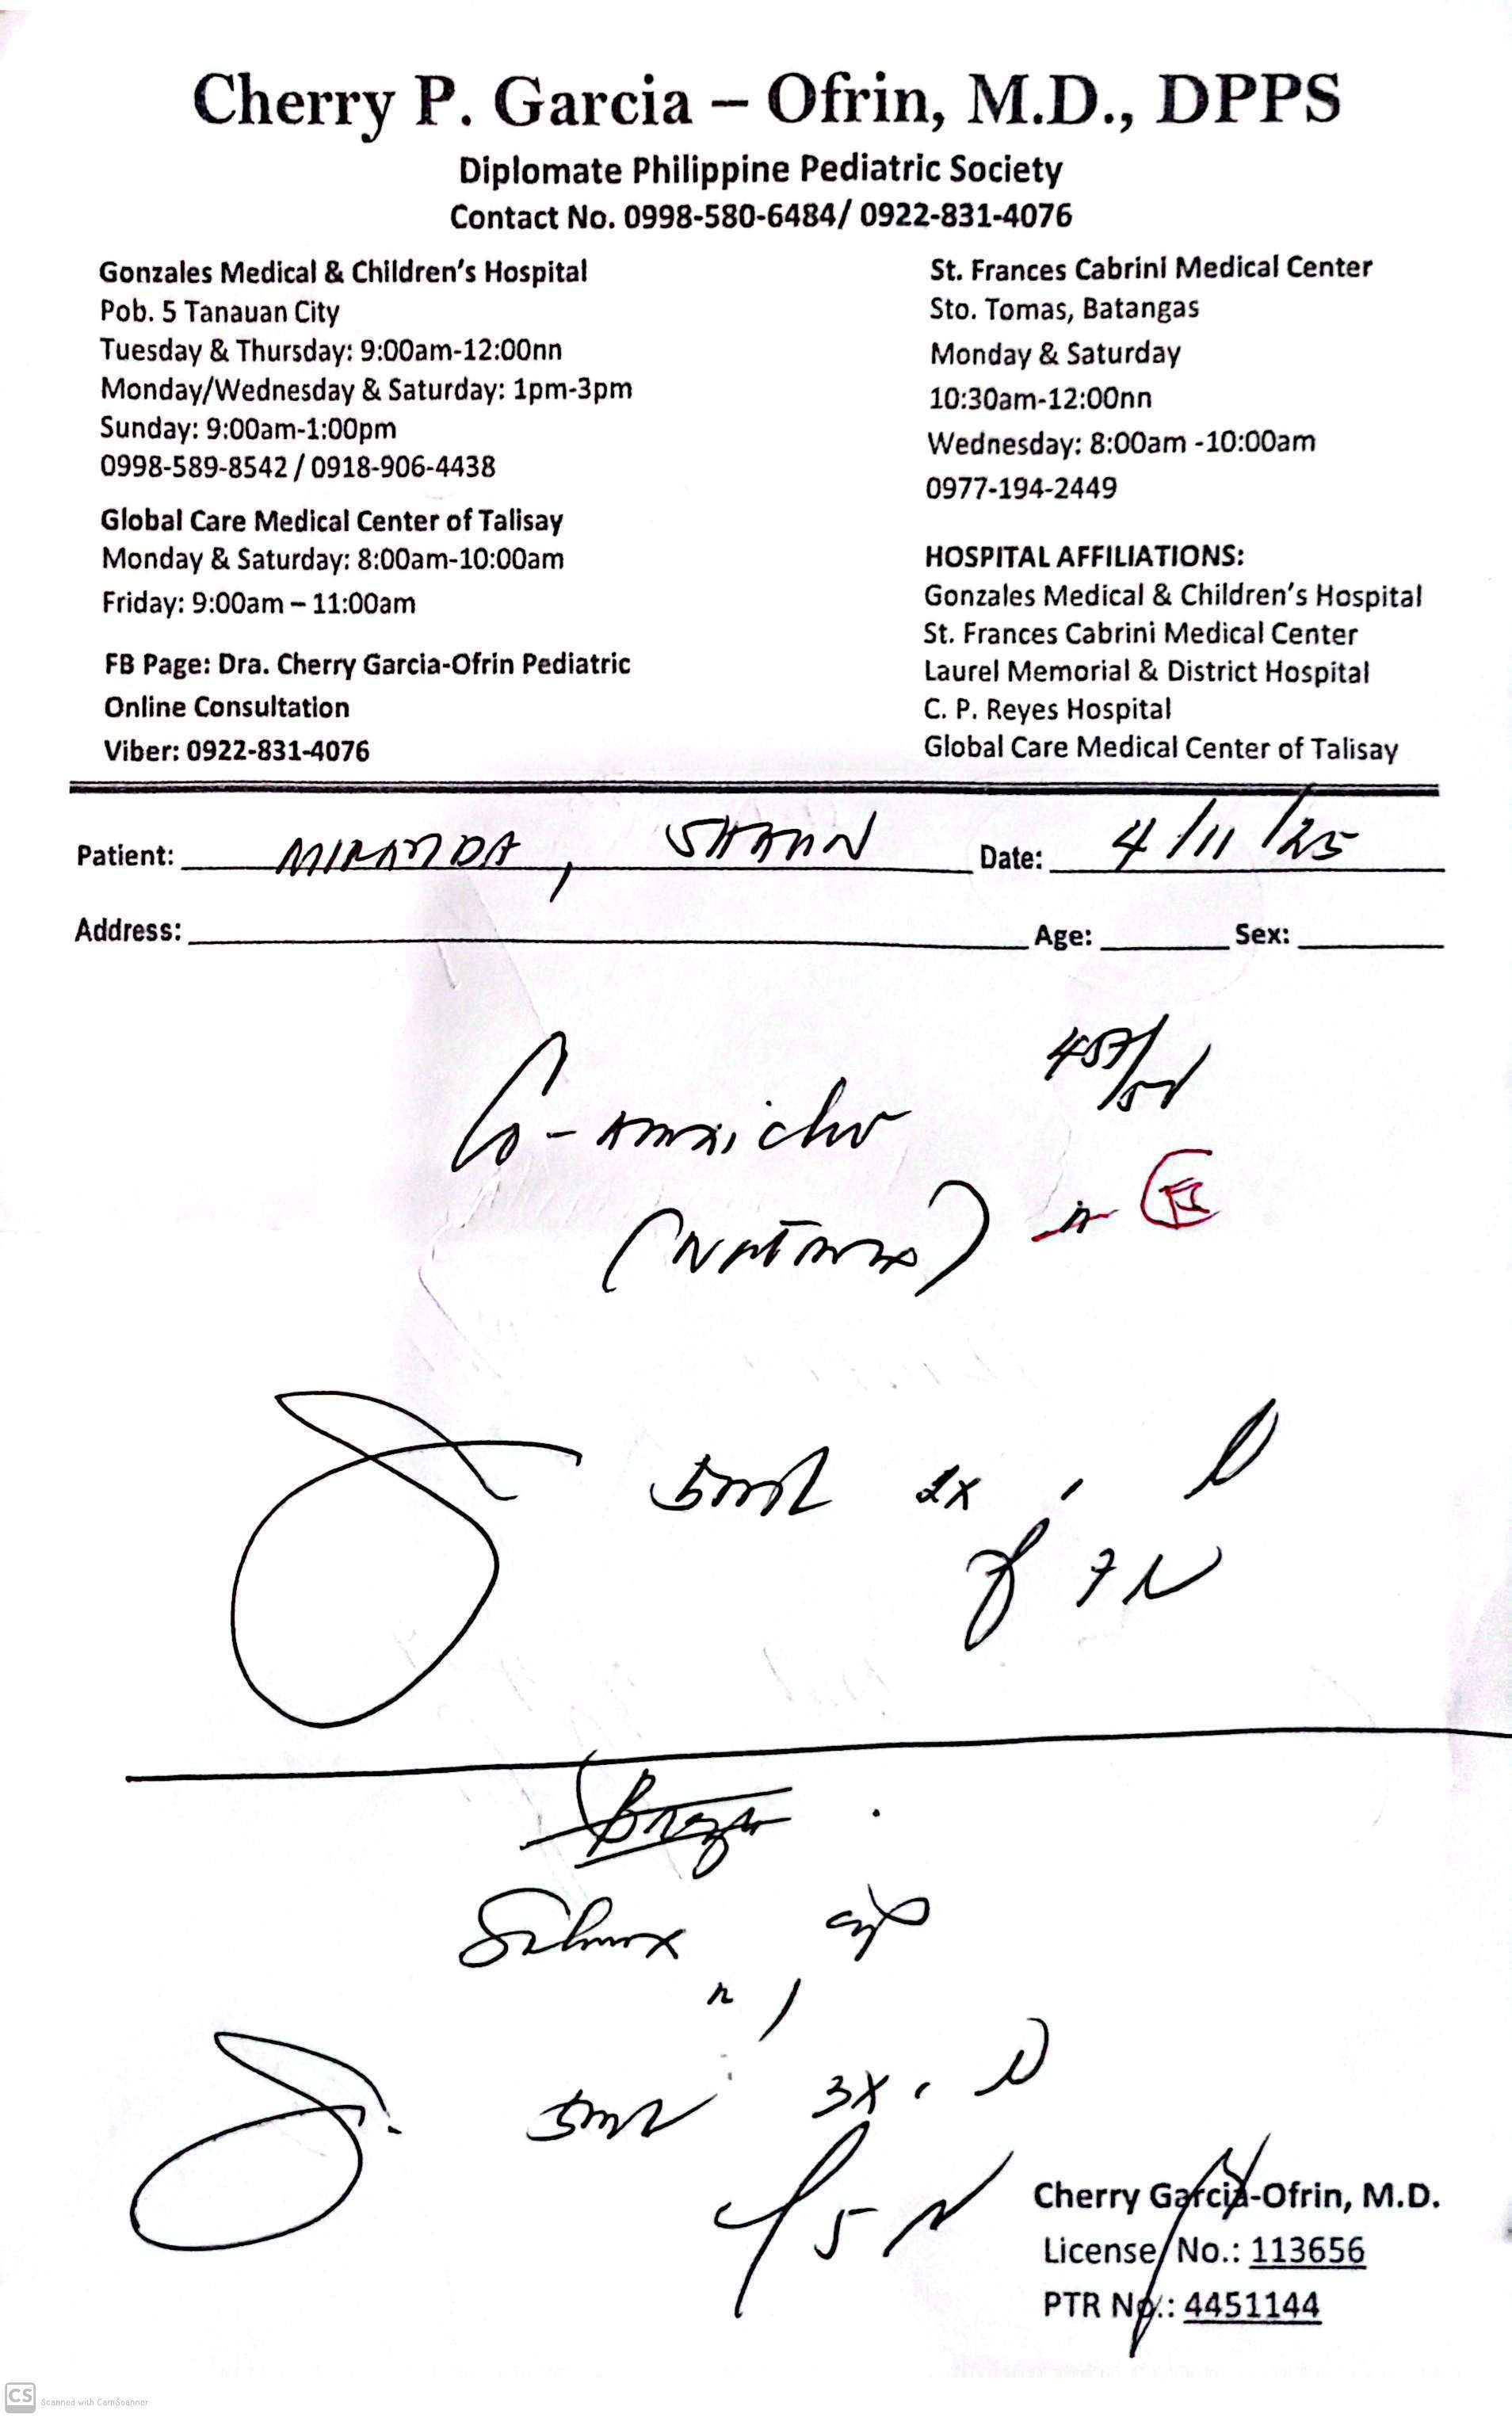 Cherry P. Garcia – Ofrin, M.D., DPPS
Diplomate Philippine Pediatric Society
Contact No. 0998-580-6484/ 0922-831-4076
Gonzales Medical & Children's Hospital
Pob. 5 Tanauan City
Tuesday & Thursday: 9:00am-12:00nn
Monday/Wednesday & Saturday: 1pm-3pm
Sunday: 9:00am-1:00pm
0998-589-8542 / 0918-906-4438
Global Care Medical Center of Talisay
Monday & Saturday: 8:00am-10:00am
Friday: 9:00am – 11:00am
FB Page: Dra. Cherry Garcia-Ofrin Pediatric
Online Consultation
Viber: 0922-831-4076
St. Frances Cabrini Medical Center
Sto. Tomas, Batangas
Monday & Saturday
10:30am-12:00nn
Wednesday: 8:00am -10:00am
0977-194-2449
HOSPITAL AFFILIATIONS:
Gonzales Medical & Children's Hospital
St. Frances Cabrini Medical Center
Laurel Memorial & District Hospital
C. P. Reyes Hospital
Global Care Medical Center of Talisay
Patient: MIRANDA, SHAUN Date: 4/11/25
Address: Age: Sex:
Co-amoxiclav 457/5ml
5ml 2x
7
5ml 3x
5
Cherry Garcia-Ofrin, M.D.
License No.: 113656
PTR No.: 4451144
CS Scanned with CamScanner